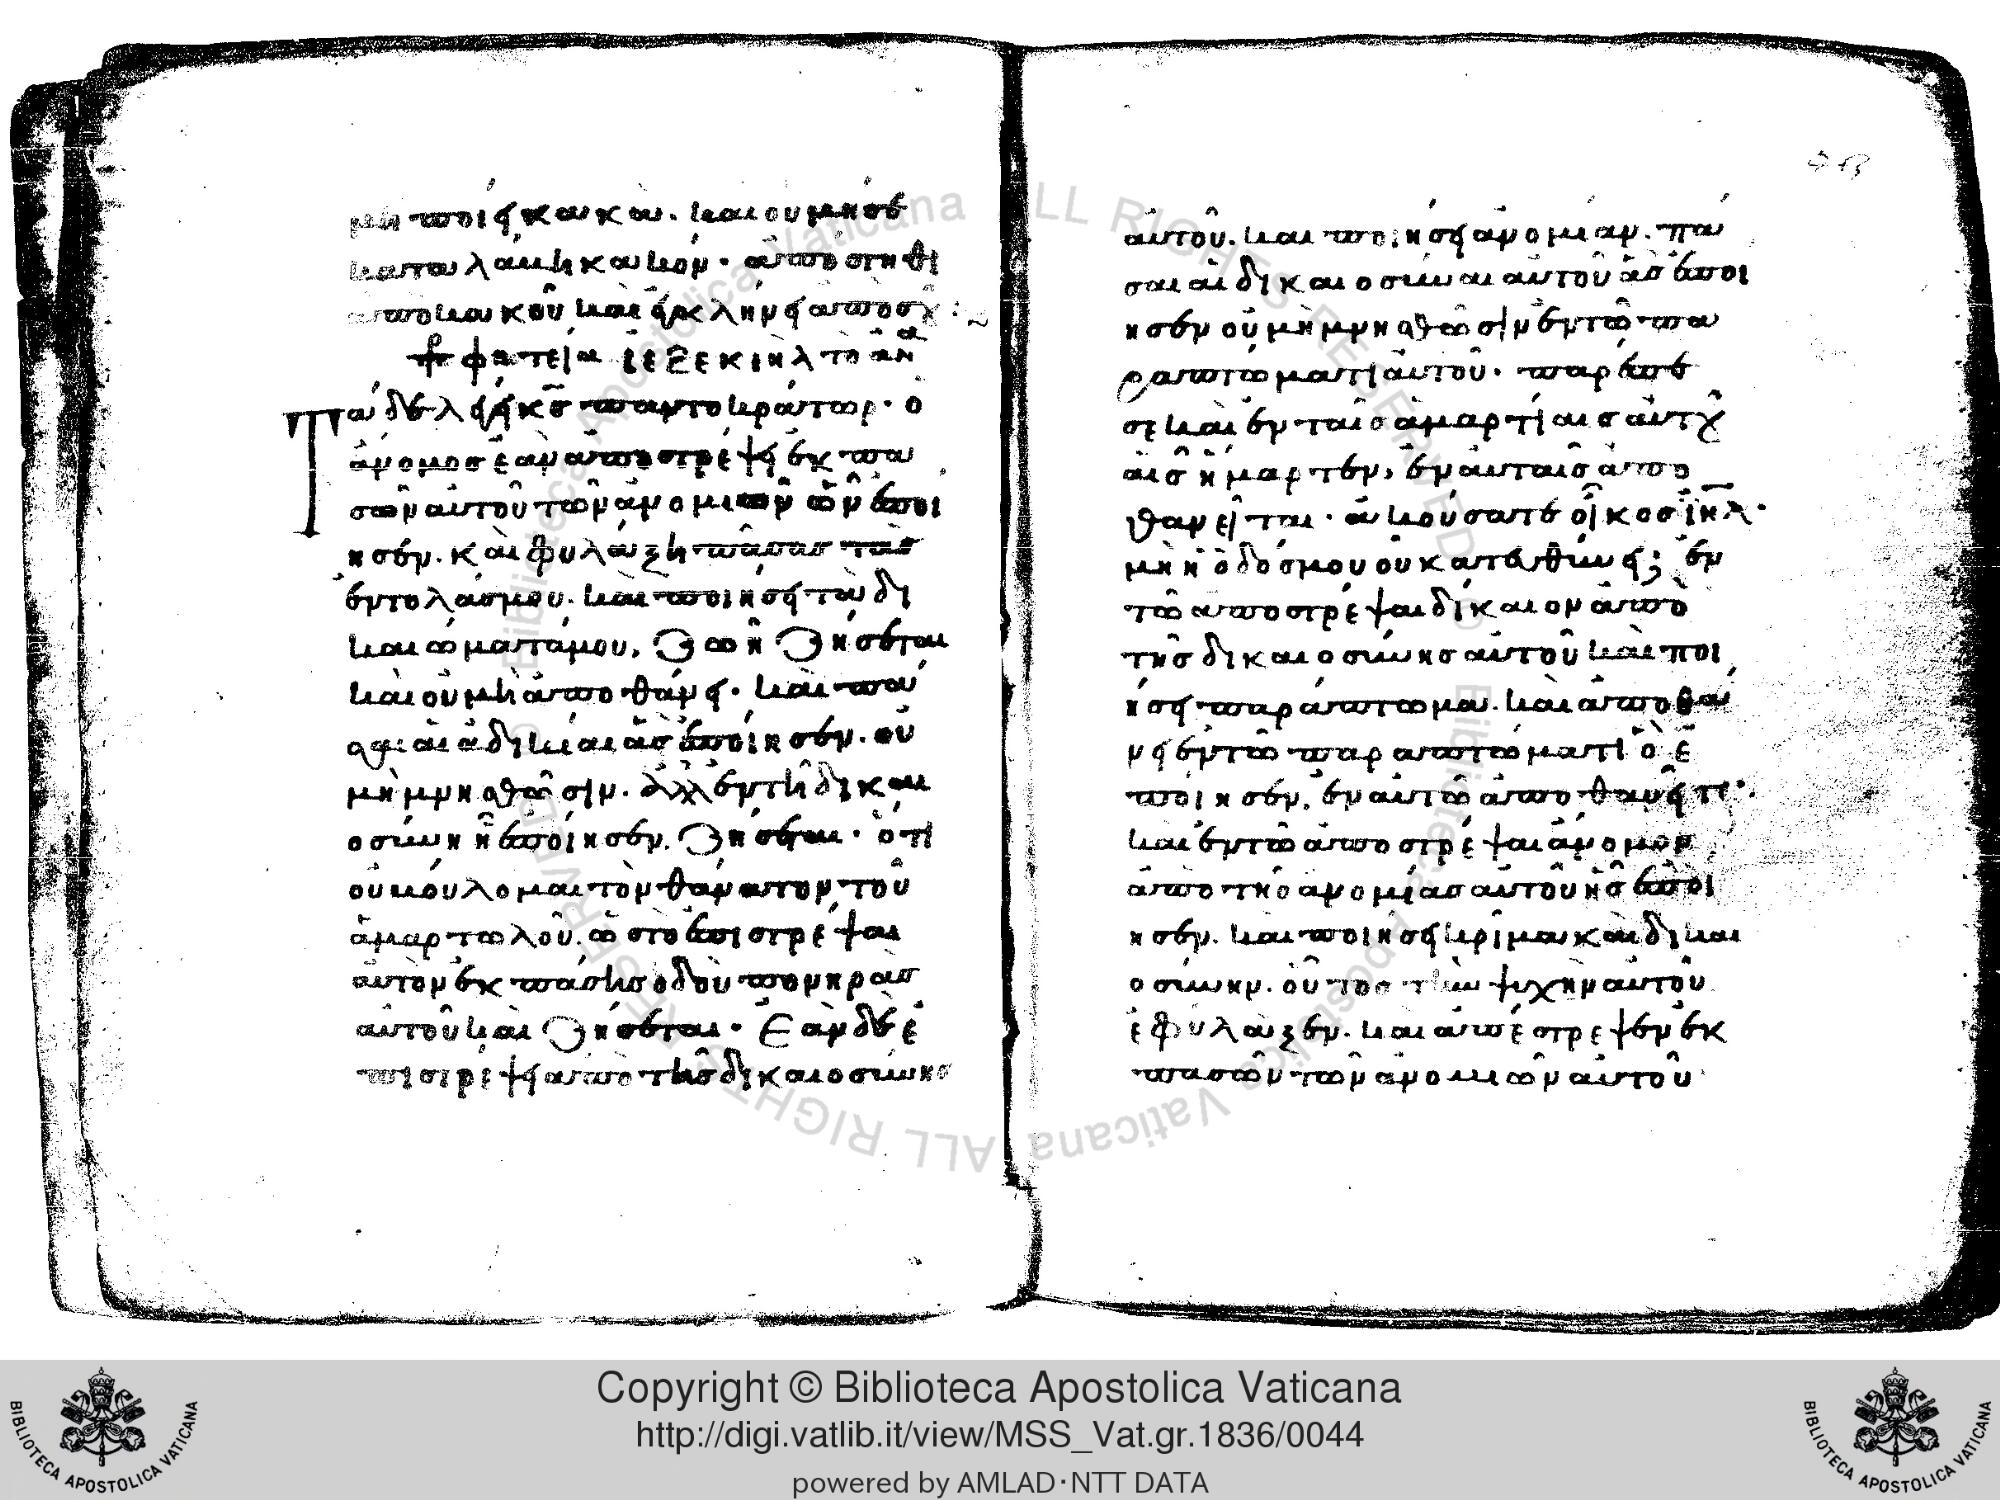 μὴ ποίει κακὰ. καὶ οὐ μή σε
καταλάβη κακόν· ἀπόστηθι
ἀπὸ κακοῦ καὶ ἐκκληνεῖ ἀπὸ σοῦ:
πρφατεία ἰεζεκιὴλ τὸ ἀν
Τάδε λέγει κς παντοκράτωρ· ὁ
ἄνομος ἐὰν ἀποστρέψει ἐκ πα
σῶν αὐτοῦ τῶν ἀνομιῶν ὧν ἐποί
ησεν. καὶ φυλάξη πάσας τὰς
ἐντολάς μου. καὶ ποιήσει τὰ δι
καιώματά μου, ζωῆ ζήσεται
καὶ οὐ μὴ ἀποθάνει. καὶ πᾶ
σαι αἱ ἀδικίαι ἃς ἐποίησεν. οὐ
μὴ μνησθῶσιν. ἀλλ ἐν τῆ δικαι
οσύνη ἧ ἐποίησεν, ζήσεται· ὅτι
οὐ βούλομαι τὸν θάνατον τοῦ
ἁμαρτωλοῦ. ὡς τὸ ἐπιστρέψαι
αὐτὸν ἐκ πάσης ὁδοῦ πονηρᾶς
αὐτοῦ καὶ ζήσεται· Ἐὰν δὲ ἐ
πιστρέψει ἀπὸ τῆς δικαιοσύνης
αὐτοῦ. καὶ ποιήσει ἀνομίαν. πᾶ
σαι αἱ δικαιοσύναι αὐτοῦ ἃς ἐποί
ησεν οὐ μὴ μνησθῶσιν ἐν τῶ πα
ραπτώματι αὐτοῦ· παρέπε
σε καὶ ἐν ταῖς ἁμαρτίαις αὐτοῦ
αἷς ἥμαρτεν, ἐν αὐταῖς ἀπο
θανεῖται· ἀκούσατε οἶκος ἰηλ·
μὴ ἡ ὁδός μου οὐ κατευθύνει; ἐν
τῶ ἀποστρέψαι δίκαιον ἀπὸ
τῆς δικαιοσύνης αὐτοῦ καὶ ποι
ήσει παράπτωμα. καὶ ἀποθά
νει ἐν τῶ παραπτώματι ὃ ἐ
ποίησεν, ἐν αὐτῶ ἀποθανεῖτε·
καὶ ἐν τῶ ἀποστρέψαι ἄνομον
ἀπὸ τῆς ἀνομίας αὐτοῦ ἧς ἐποί
ησεν. καὶ ποιήσει κρίμα καὶ δικαι
οσύνην. οὗτος τὴν ψυχὴν αὐτοῦ
ἐφύλαξεν. καὶ ἀπέστρεψεν ἐκ
πασῶν τῶν ἀνομιῶν αὐτοῦ
Copyright © Biblioteca Apostolica Vaticana
http://digi.vatlib.it/view/MSS_Vat.gr.1836/0044
powered by AMLAD·NTT DATA